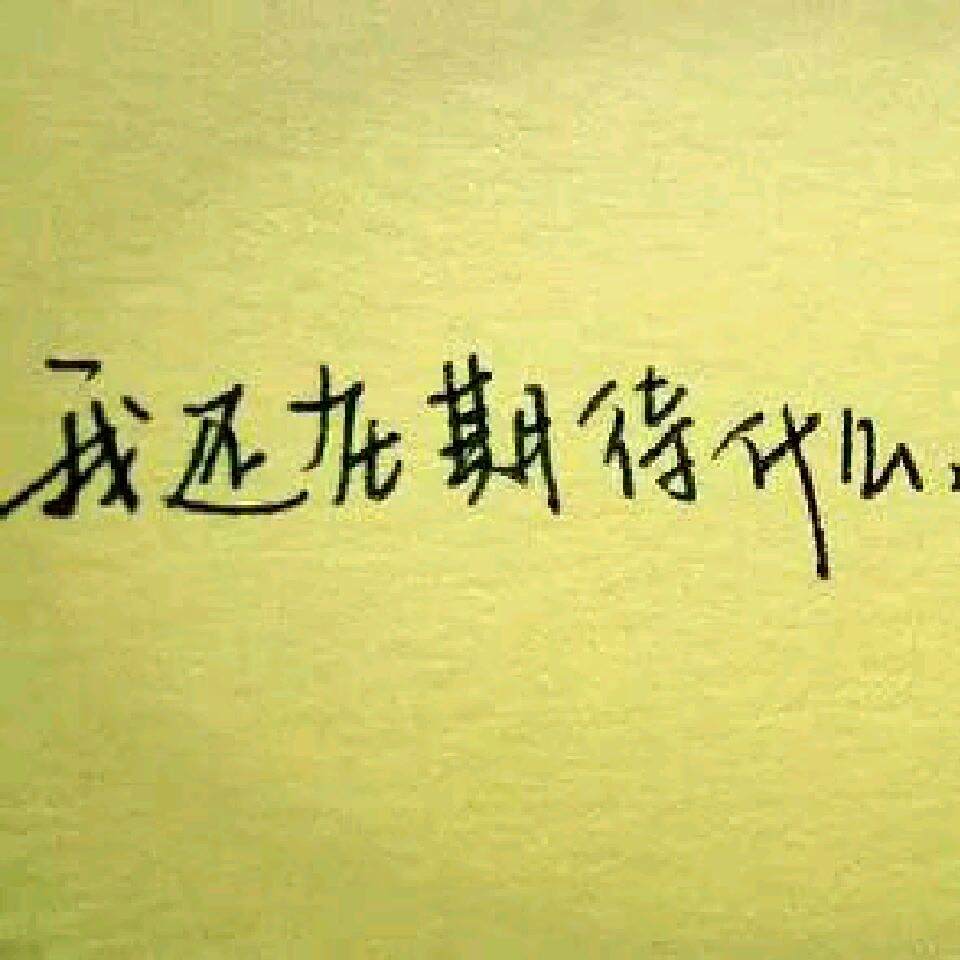 我还在期待什么.